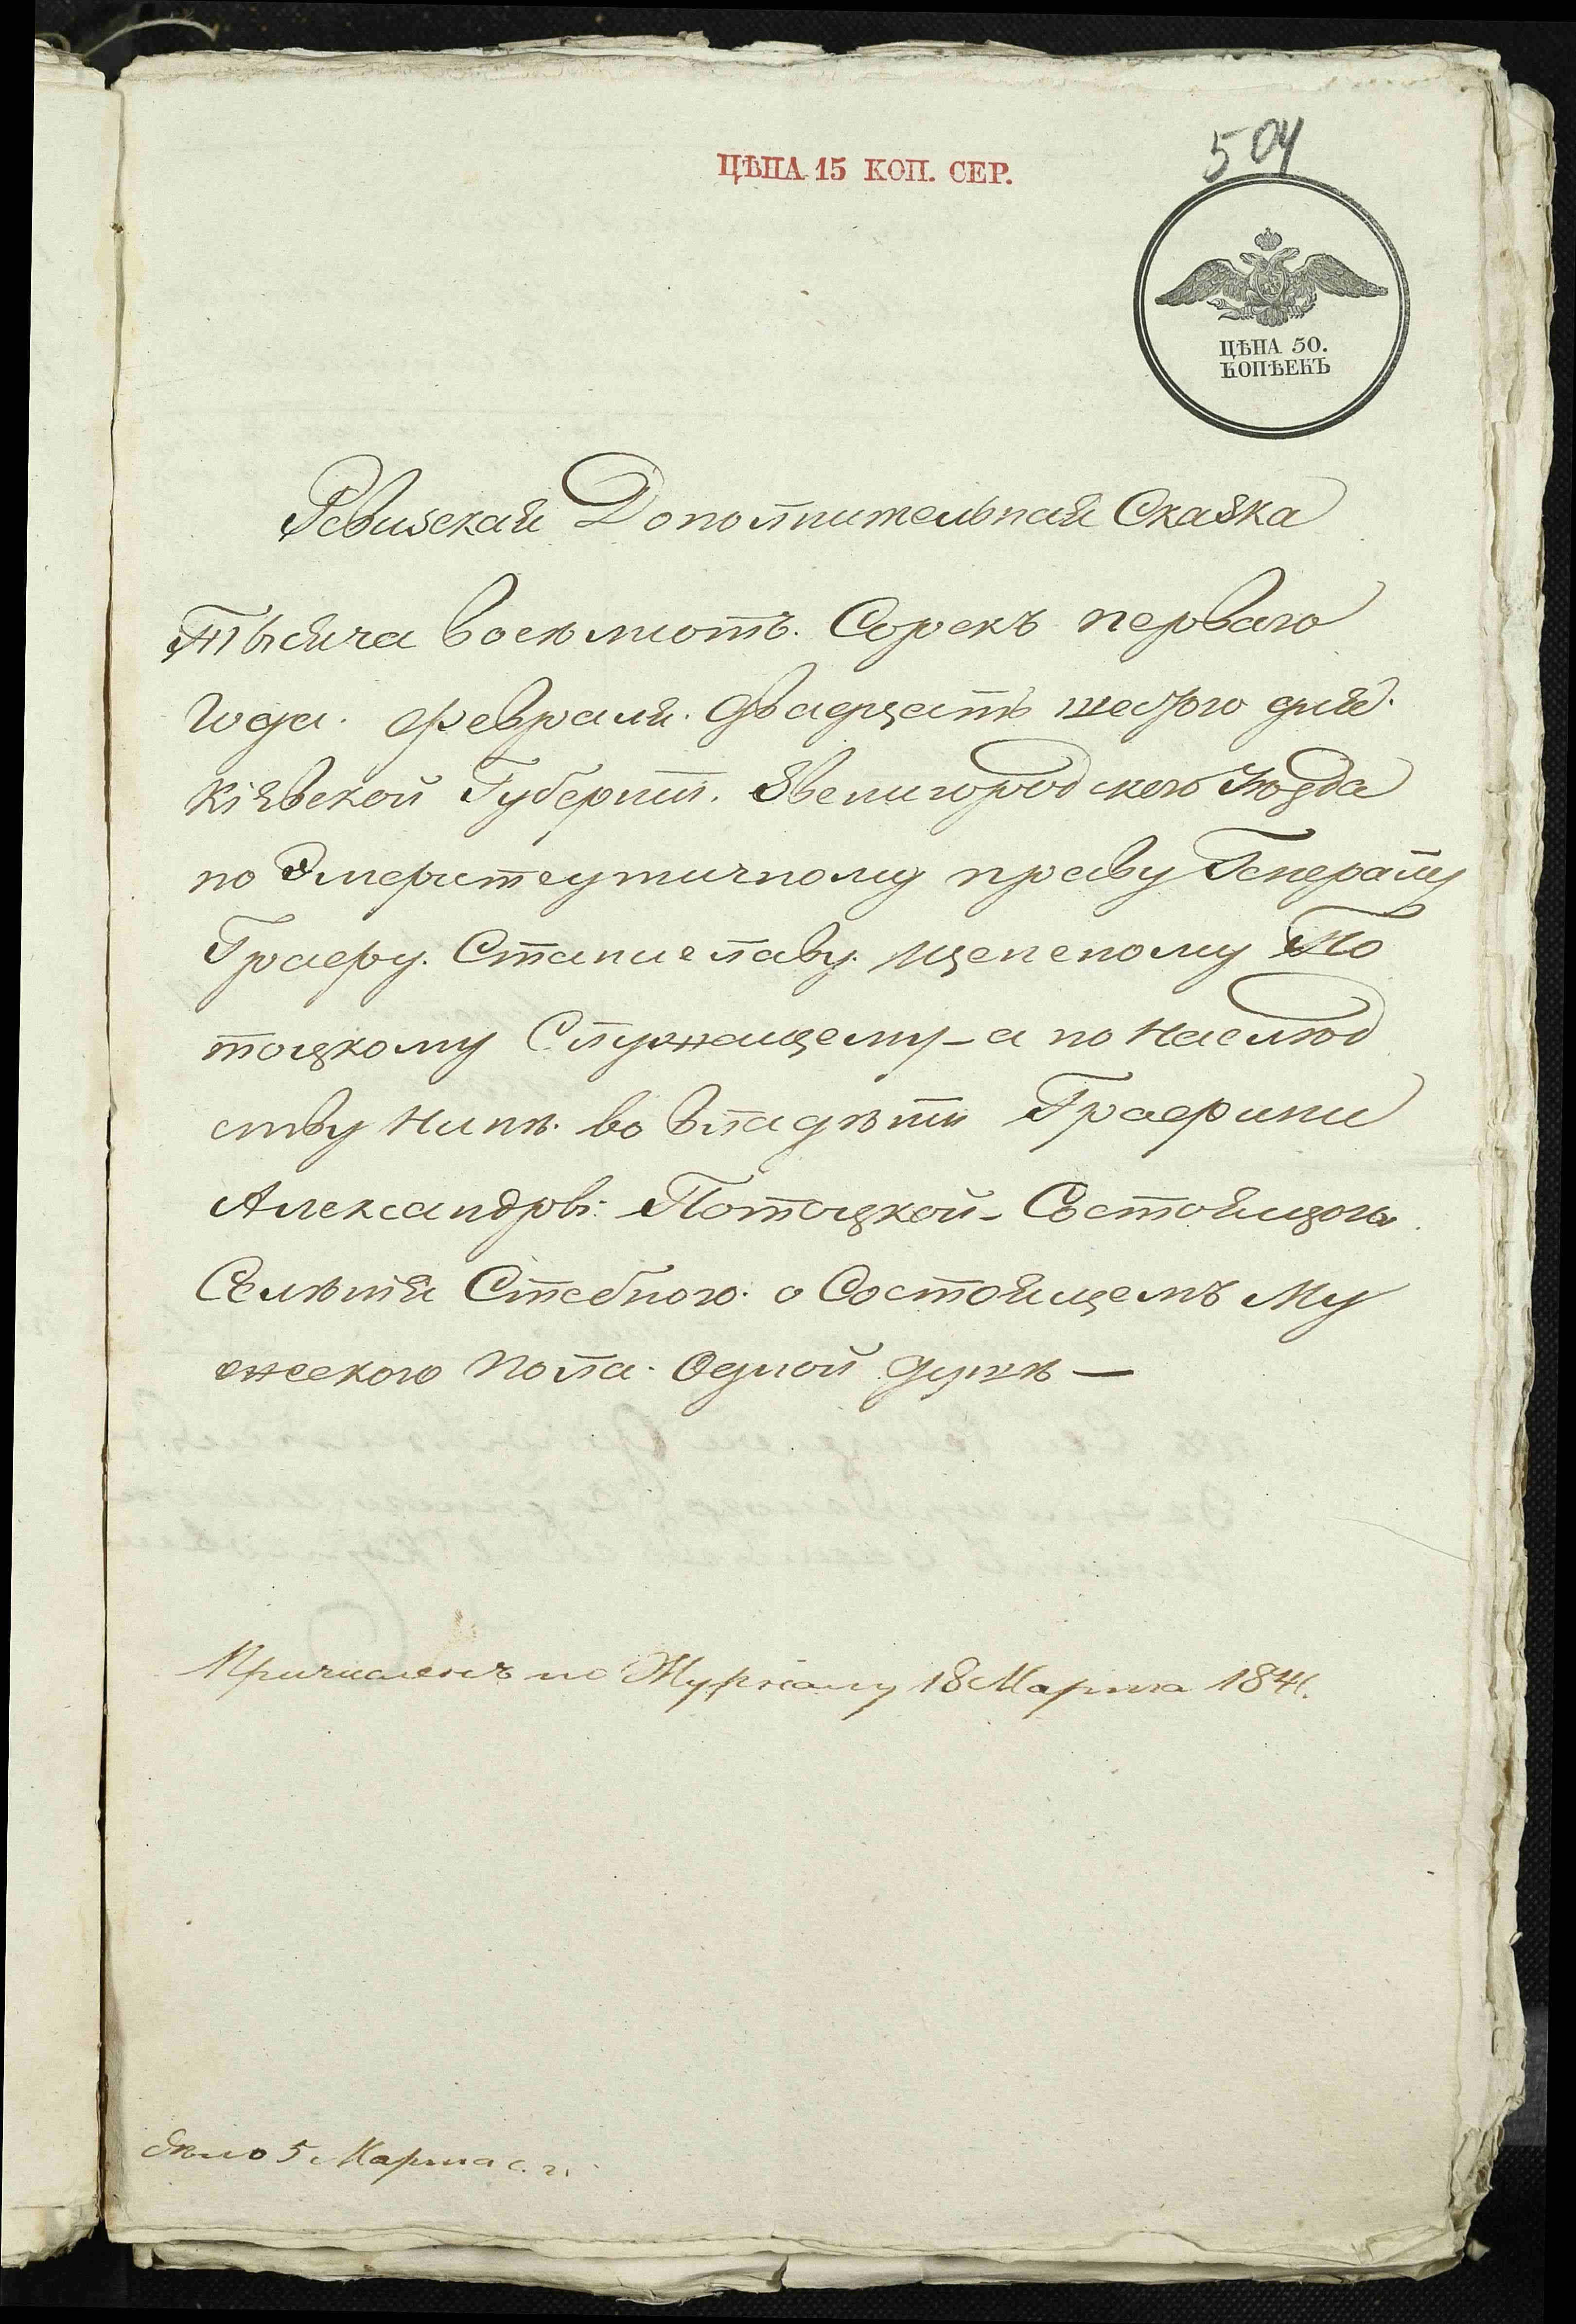 504
ЦѢНА 15 КОП. СЕР.
ЦѢНА 50.
КОПѢЕКЪ
Ревизская Дополнительная Сказка
Тысяча восемьсотъ. Сорокъ перваго
Года. февраля. двадцать шестого дня.
Кіявской Губерніи. Звенигородского Уѣзда
по Эмеритеутичному праву Генералу
Графу. Станиславу. Щенсному По
тоцкому Служащему - а по Наслѣд
ству Нинѣ. во владѣніи Графини
Александры: Потоцкой - Состоящого
Селѣнія Стебного. о Состоящемъ Му
жеского Пола. Одной душѣ —
Причисленъ по Журналу 18 Марта 1841.
дѣло 5 Марта с. г.